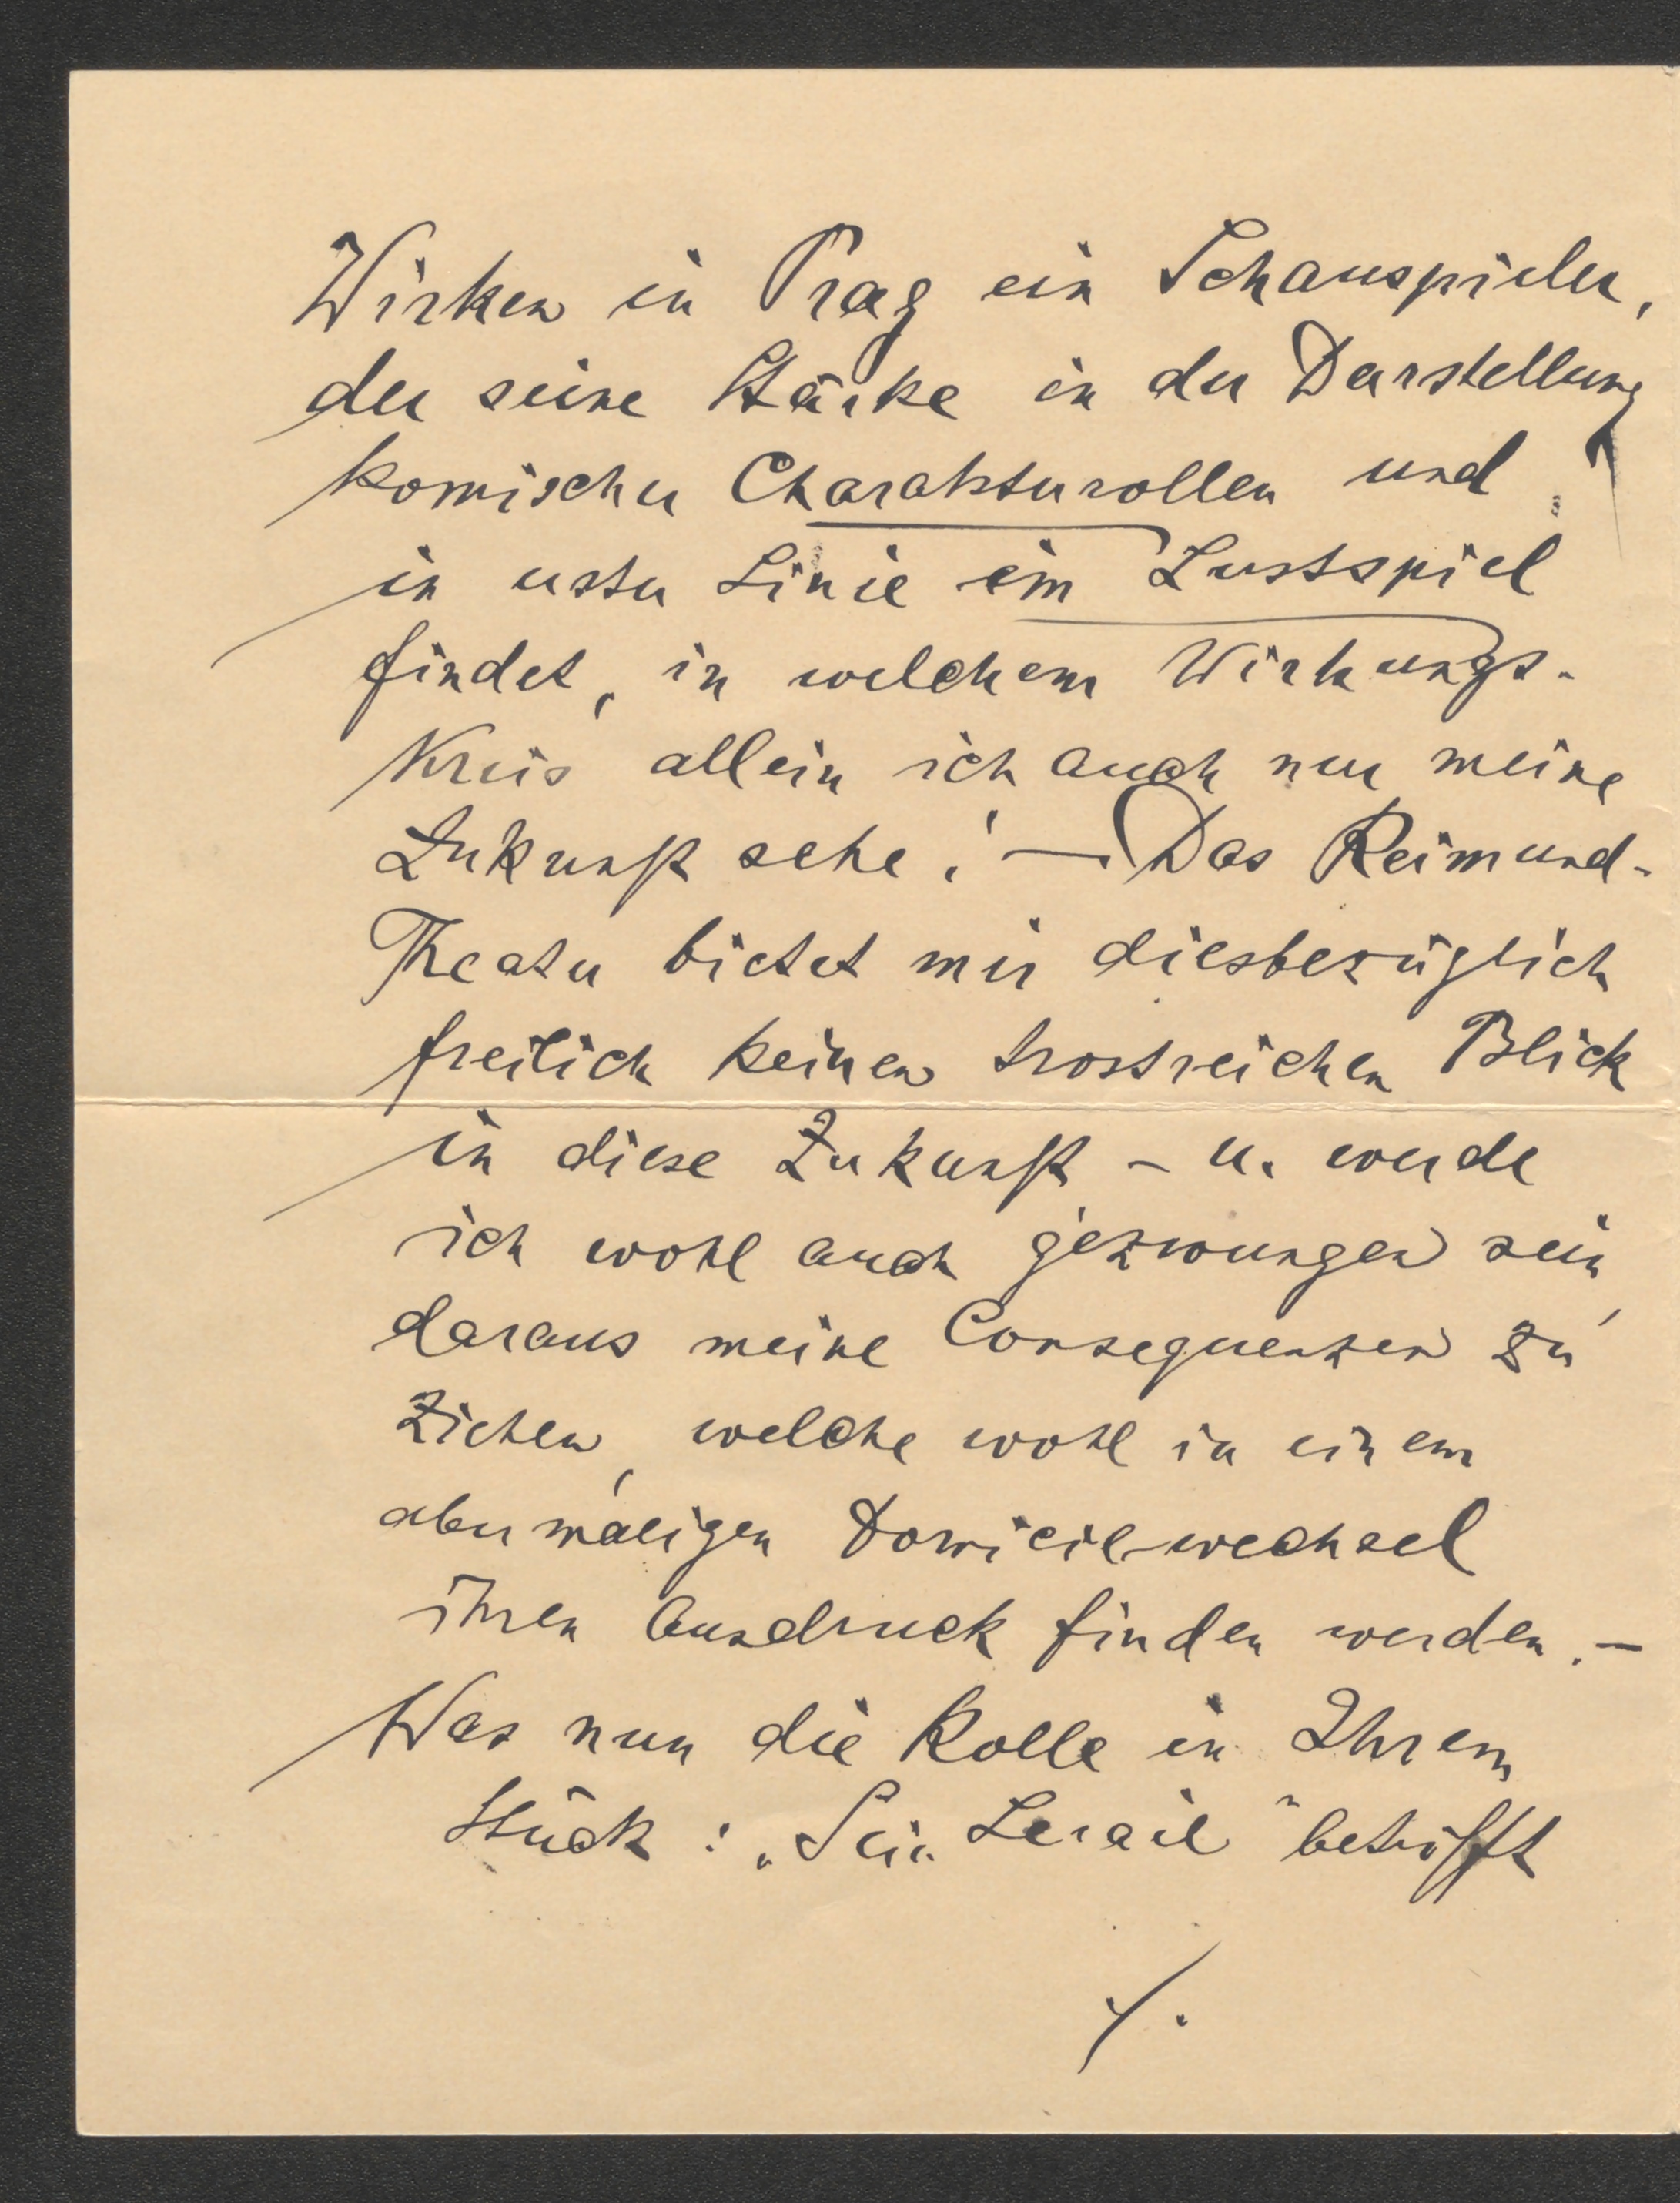 Wirken in Prag ein Schauspieler,
der seine Stärke in der Darstellung
komischer Charakterrollen und
in erster Linie im Lustspiel
findet, in welchem Wirkungs-
Kreis allein ich auch nur meine
Zukunft sehe! — Das Reimund-
Theater bietet mir diesbezüglich
freilich keinen trostreichen Blick
in diese Zukunft – u. werde
ich wohl auch gezwungen sein,
daraus meine Consequenzen zu
Ziehen, welche wohl in einem
abermaligen Domicil-wechsel
ihren Ausdruck finden werden. –
Was nun die Rolle in Ihrem
Stück: „Sein Serail" betrifft
./.